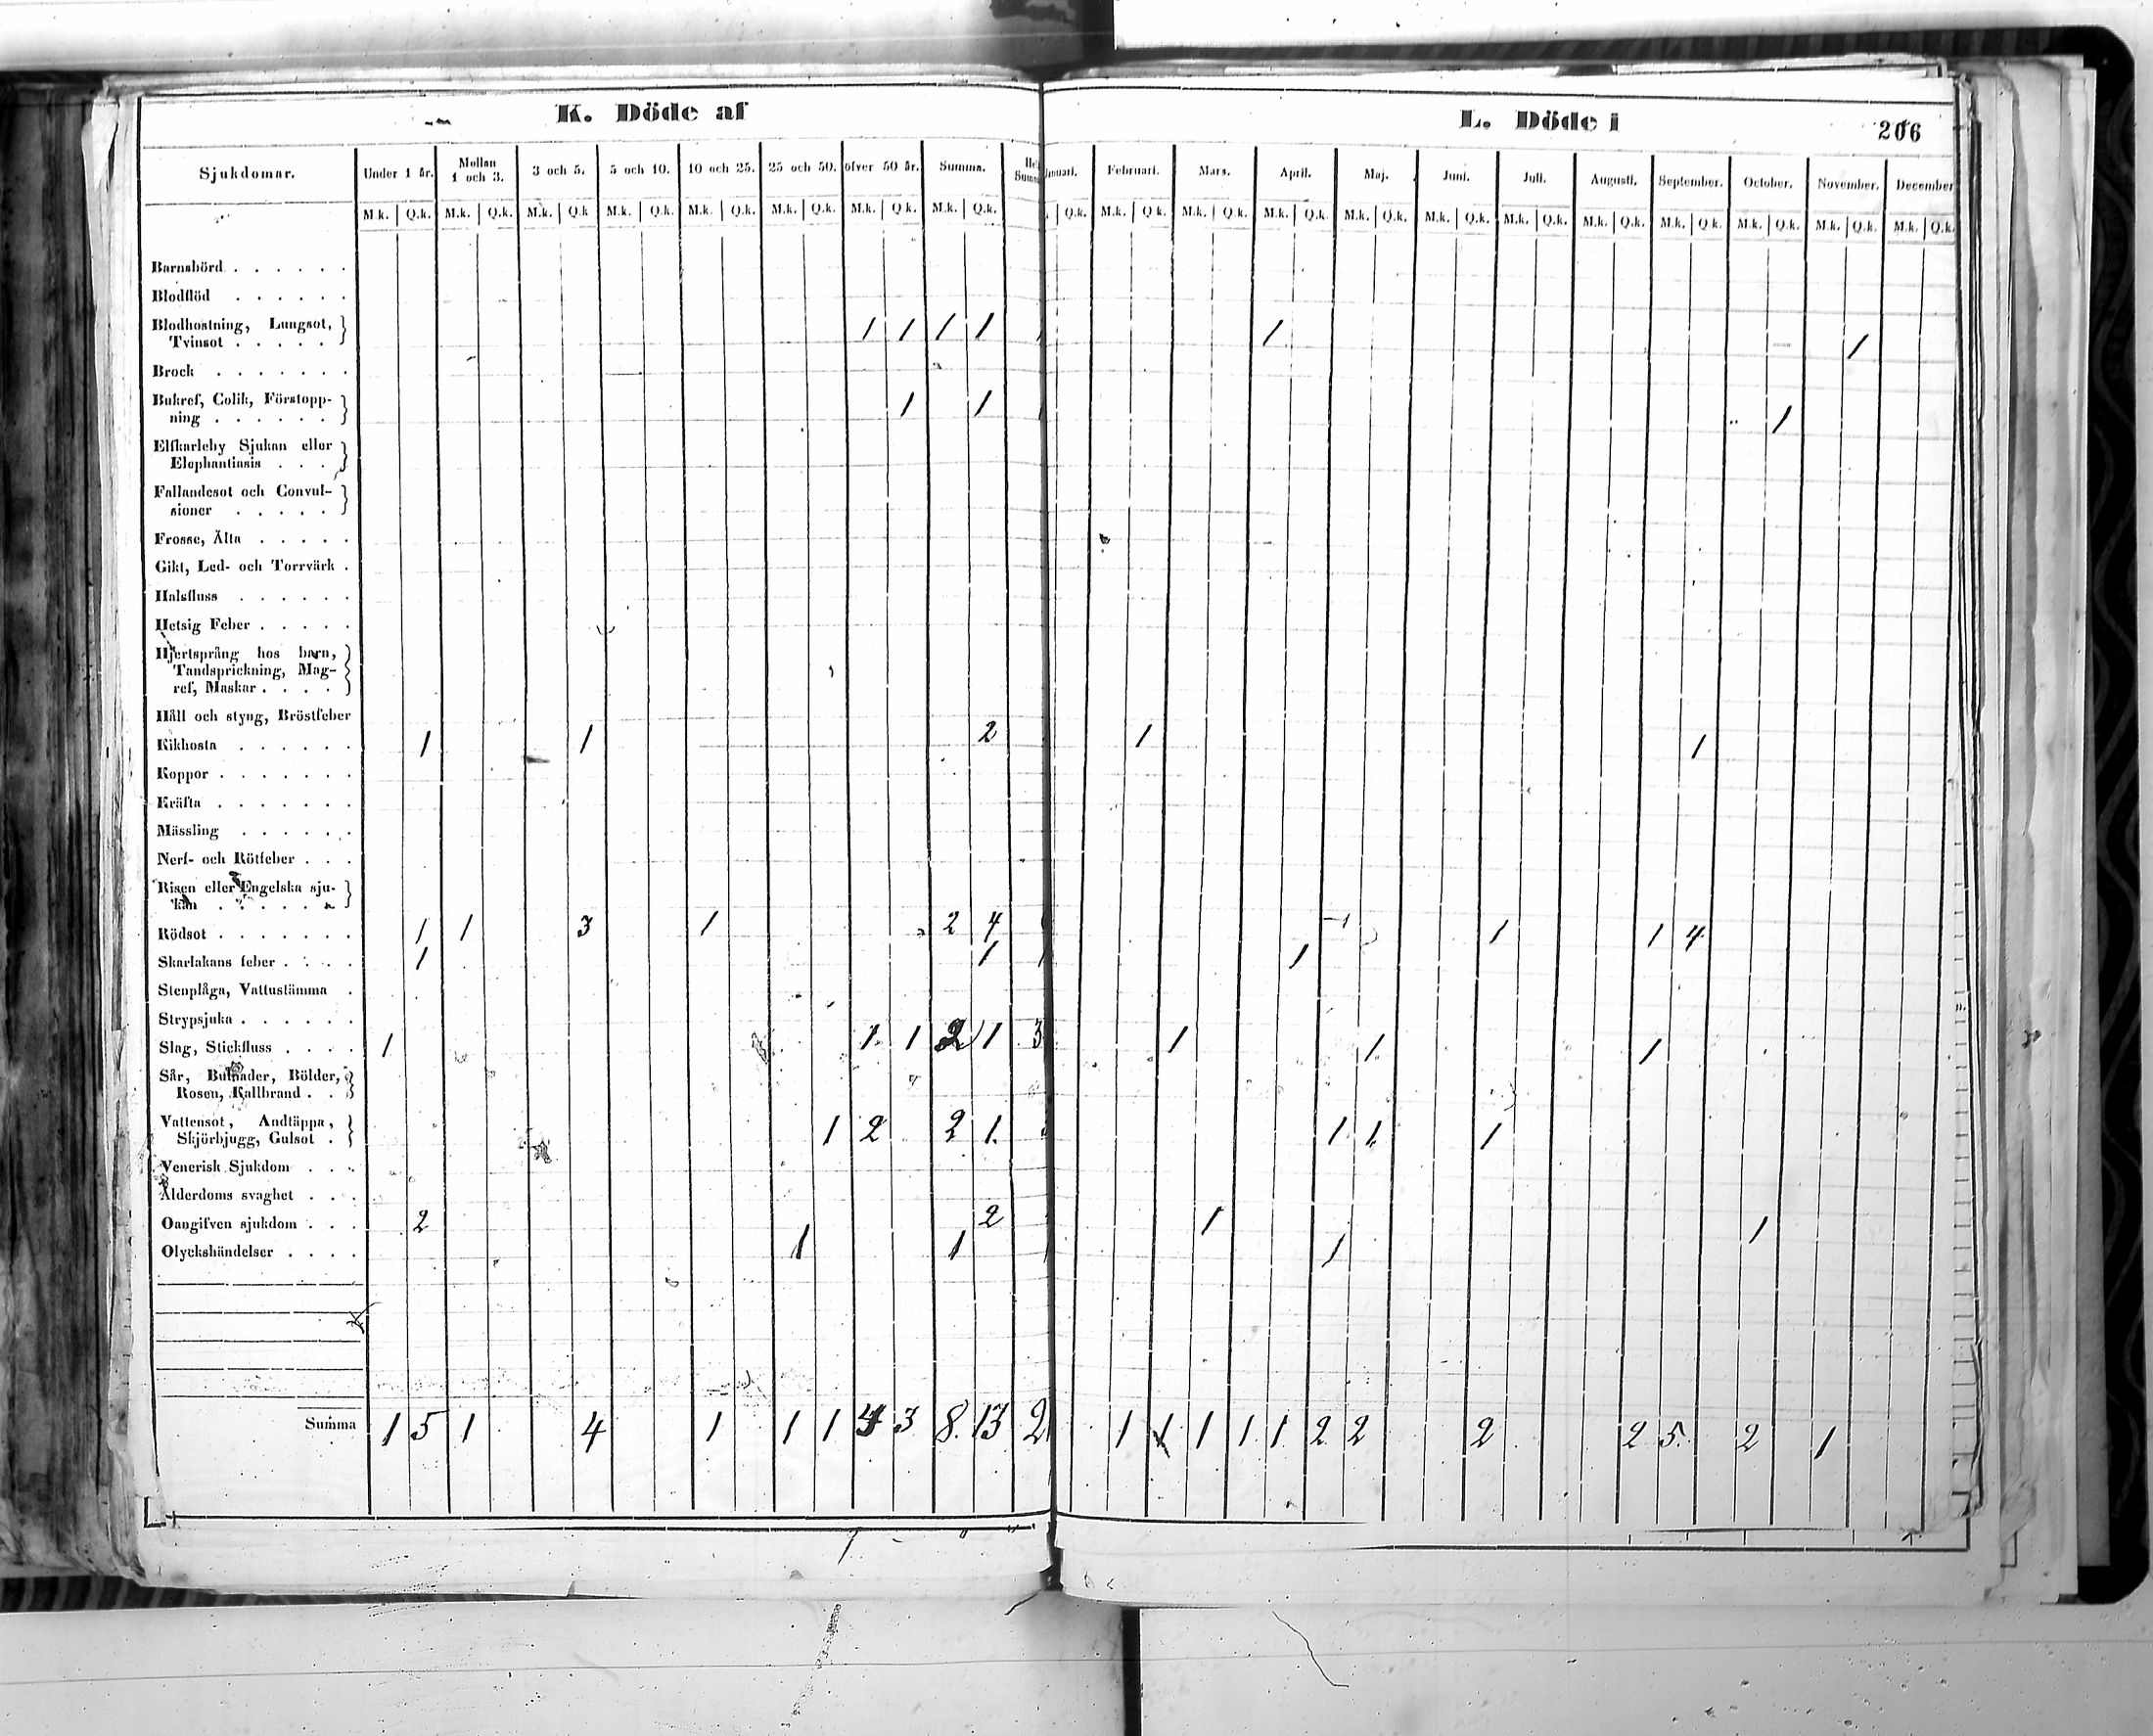 K. Döde af
L. Döde i
206
Sjukdomar. Under 1 år. Mellan 1 och 3. 3 och 5. 5 och 10. 10 och 25. 25 och 50. öfver 50 år. Summa.
Februari. Mars. April. Maj. Juni. Juli. Augusti. September. October. November. December
M.k. Q.k. M.k. Q.k. M.k. Q.k M.k. Q.k. M.k. Q.k. M.k. Q.k. M.k. Q.k. M.k. Q.k.
Q.k. M.k. Q.k. M.k. Q.k. M.k. Q.k. M.k. Q.k. M.k. Q.k. M.k. Q.k. M.k. Q.k. M.k. Q.k. M.k. Q.k. M.k. Q.k. M.k. Q.k.
Barnsbörd . . . . . .
Blodflöd . . . . . .
Blodhostning, Lungsot,
Tvinsot . . . . . 1 1 1 1 1 1
Brock . . . . . . .
Bukref, Colik, Förstopp-
ning . . . . . . 1 1 1
Elfkarleby Sjukan eller
Elephantiasis . . . .
Fallandesot och Convul-
sioner . . . . .
Frosse, Älta . . . . .
Gikt, Led- och Torrvärk .
Halsfluss . . . . . .
Hetsig Feber . . . . .
Hjertsprång hos barn,
Tandsprickning, Mag-
ref, Maskar . . . .
Håll och styng, Bröstfeber
Kikhosta . . . . . . 1 1 2 1 1
Koppor . . . . . . .
Kräfta . . . . . . .
Mässling . . . . . .
Nerf- och Rötfeber . . .
Risen eller Engelska sju-
kan . . . . . .
Rödsot . . . . . . . 1 1 3 1 2 4 1 1 4
Skarlakans feber . . . . 1 1 1
Stenplåga, Vattustämma .
Strypsjuka . . . . . .
Slag, Stickfluss . . . . 1 1 1 2 1 3 1 1 1
Sår, Bulnader, Bölder,
Rosen, Kallbrand . .
Vattensot, Andtäppa,
Skjörbjugg, Gulsot . 1 2 2 1 1 1 1
Venerisk Sjukdom . . .
Ålderdoms svaghet . . .
Oangifven sjukdom . . . 2 2 1 1
Olyckshändelser . . . . 1 1 1
Summa 1 5 1 4 1 1 1 4 3 8 13 2 1 1 1 1 1 2 2 2 2 5 2 1